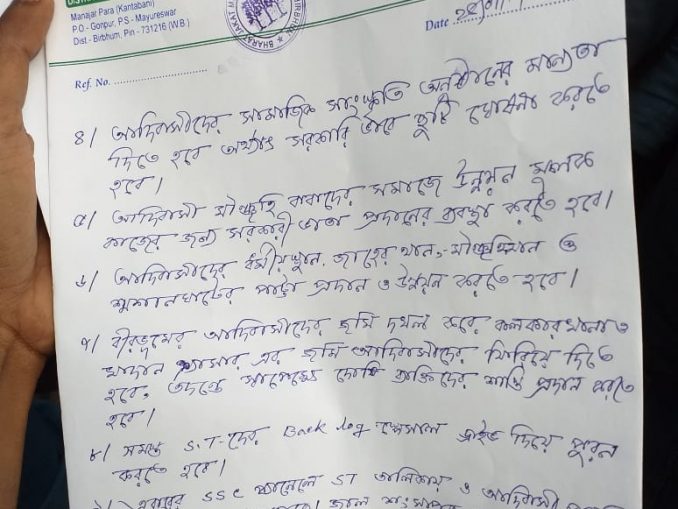 Manajar Para (Kantabani)
P.O - Gonpur, P.S - Mayureswar
Dist - Birbhum, Pin - 731216 (W.B.)
Date
Ref. No.
৪/ আদিবাসীদের সামাজিক সাংস্কৃতি অনুষ্ঠানের মান্যতা
দিতে হবে অর্থাৎ সরকারি ভাবে ছুটি ঘোষনা করতে
হবে।
৫/ আদিবাসী মাঁঝহি বাবাদের সমাজে উন্নয়ন মূলক
কাজের জন্য সরকারী ভাতা প্রদানের ব্যবস্থা করতে হবে।
৬/ আদিবাসীদের ধর্মীয়স্থান, জাহের থান, মাঁঝহিথান ও
শ্মশানঘাটের পাট্টা প্রদান ও উন্নয়ন করতে হবে।
৭/ বীরভূমের আদিবাসীদের জমি দখল করে কলকারখানা ও
খাদান এর জমি আদিবাসীদের ফিরিয়ে দিতে
হবে, তদন্ত সাপেক্ষে দোষী ব্যক্তিদের শাস্তি প্রদান করতে
হবে।
৮/ সমস্ত S.T-দের Back log স্পেসাল ড্রাইভ দিয়ে পুরন
করতে হবে।
SSC প্যানেলে ST তালিকায় ও আদিবাসী